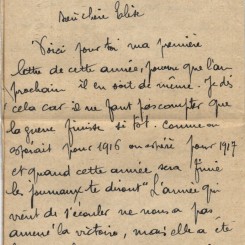 Bien chère Elise
Voici pour toi ma première
lettre de cette année, pourvu que l'an
prochain il en soit de même. Je dis
cela car il ne faut pas compter que
la guerre finisse si tôt. Comme on
espérait pour 1916 on espère pour 1917
et quand cette année sera finie
les journaux te diront "L'année qui
vient de s'écouler ne nous a pas
amené la victoire, mais elle a été